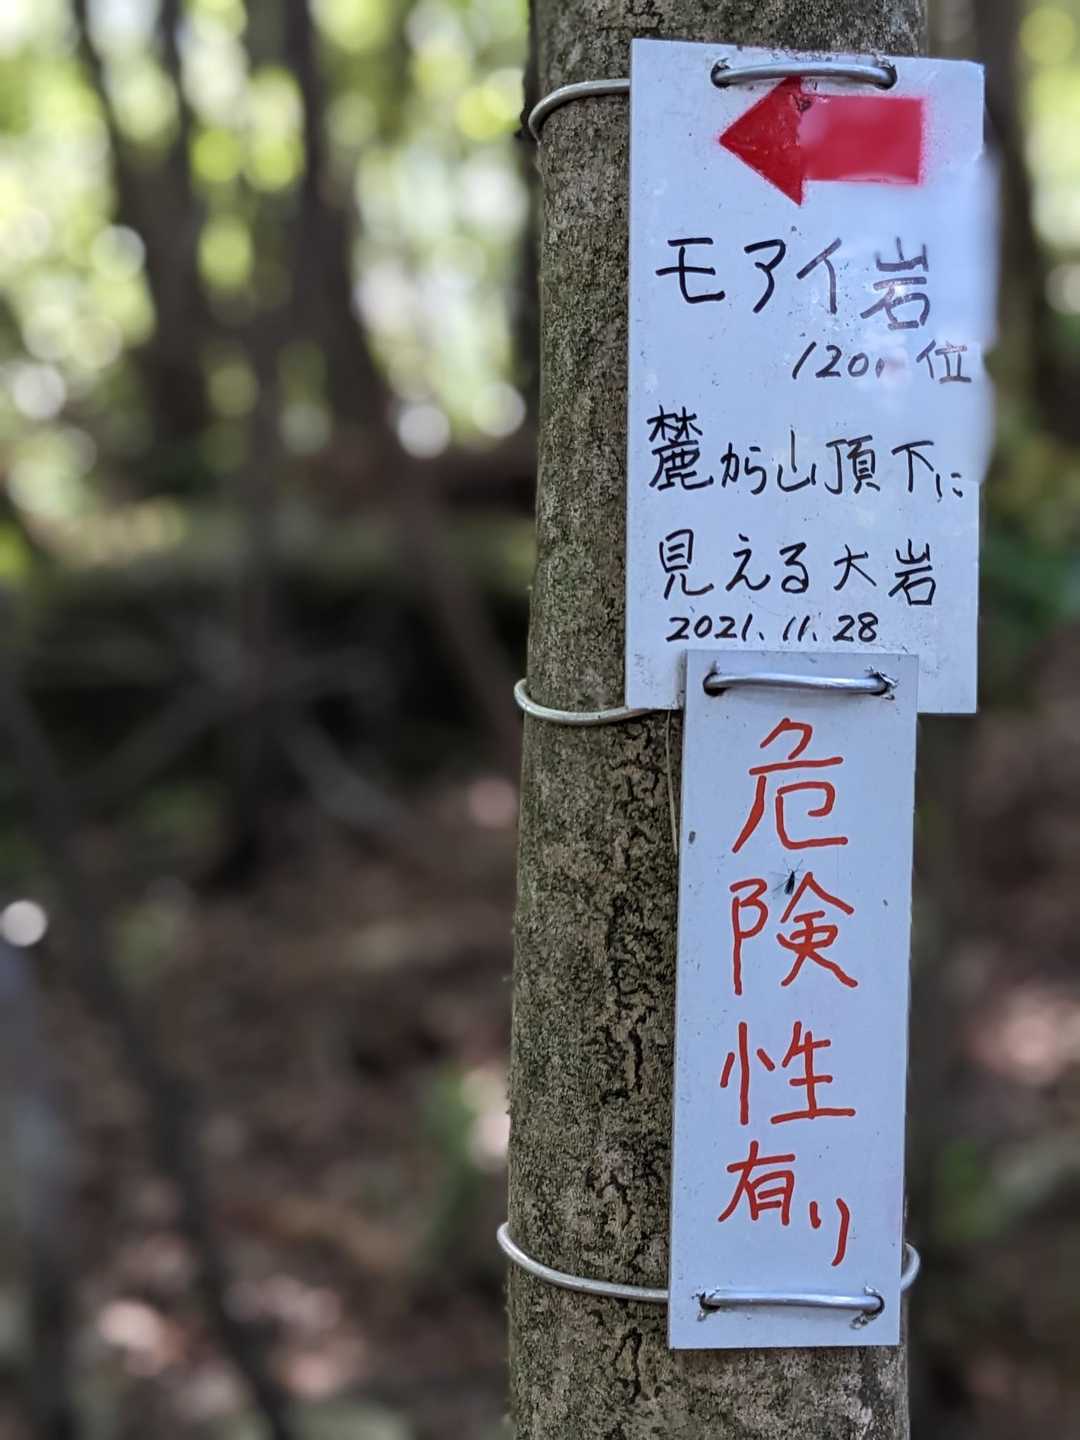 モアイ岩
120m位
麓から山頂下に
見える大岩
2021.11.28
危険性有り